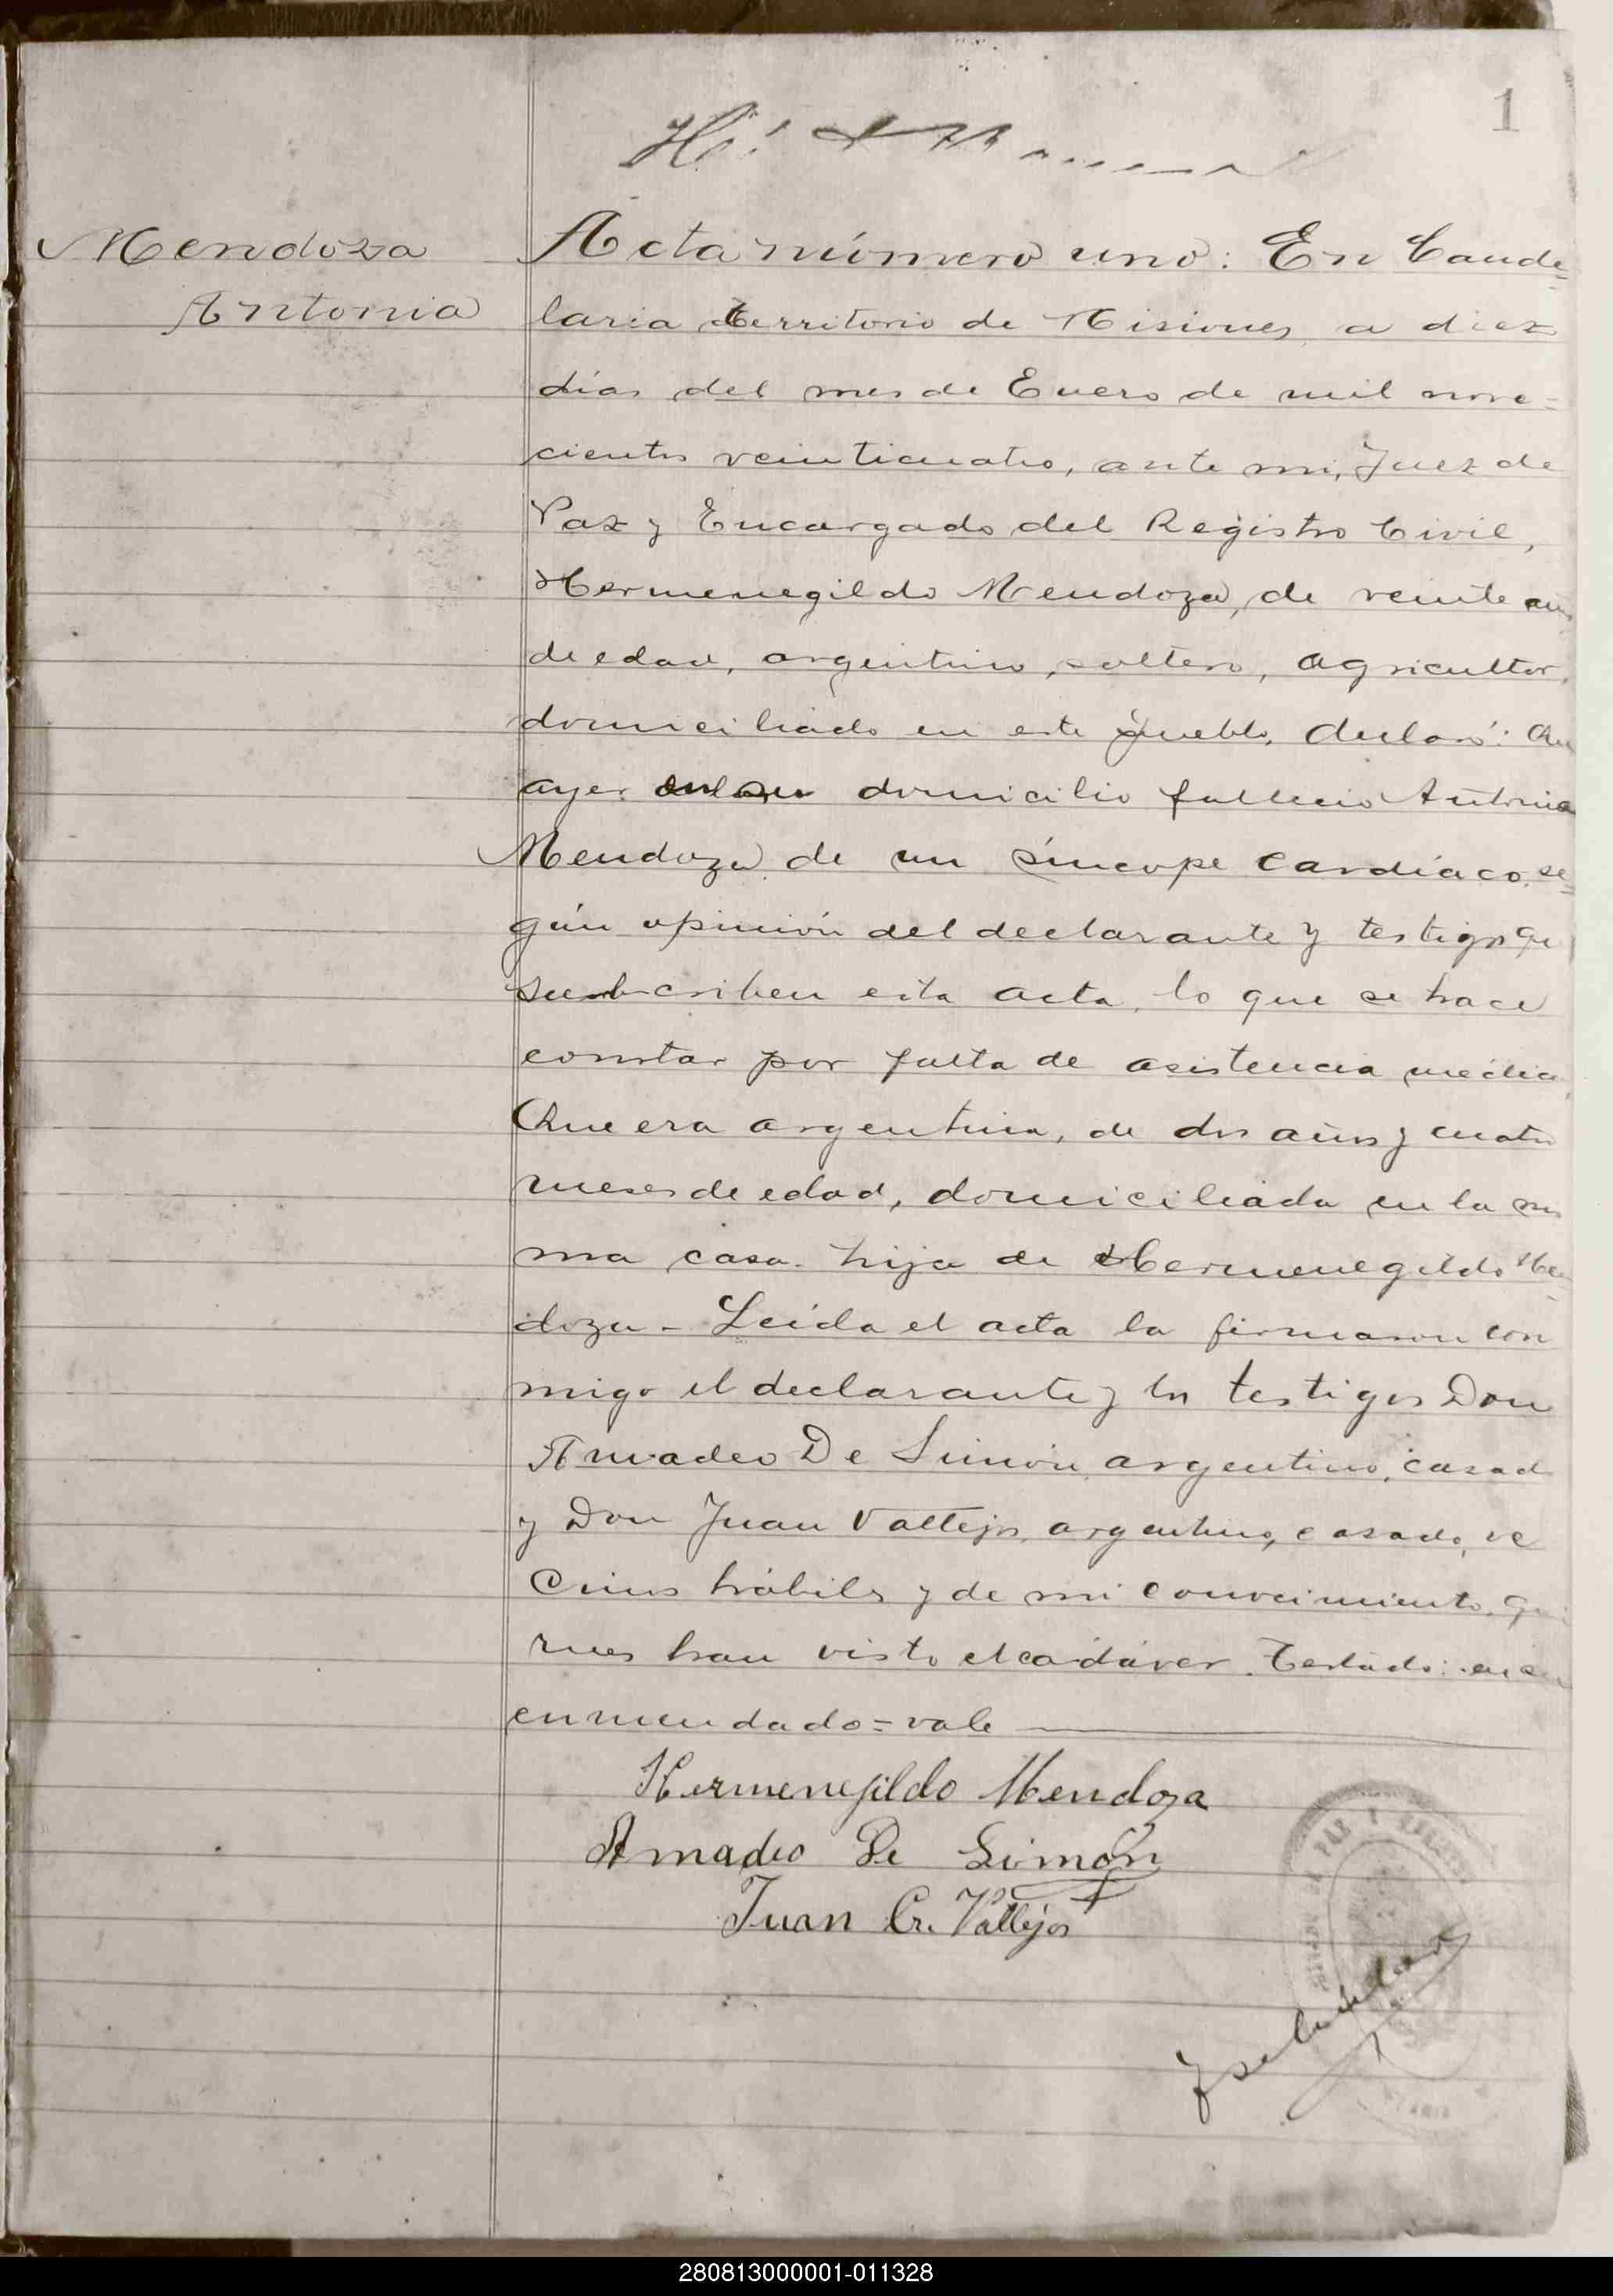 1
Mendoza
Antonia
Acta número uno: En Cande-
laria territorio de Misiones, a diez
días del mes de Enero de mil nove-
cientos veinticuatro, ante mi, Juez de
Paz y Encargado del Registro Civil,
Hermenegildo Mendoza, de veinte años
de edad, argentino, soltero, agricultor,
domiciliado en este pueblo, declaró: Que
ayer en su domicilio falleció Antonia
Mendoza, de un síncope cardíaco, se-
gún opinión del declarante y testigos que
subscriben esta acta, lo que se hace
constar por falta de asistencia médica.
Que era argentina, de dos años y cuatro
meses de edad, domiciliada en la mis
ma casa. hija de Hermenegildo Men-
doza - Leída el acta la firmaron con
migo el declarante y los testigos Don
Amadeo De Simón, argentino, casado
y Don Juan Vallejos, argentino, casado, ve
cinos hábiles y de mi conocimiento, qui
enes han visto el cadáver. Testado: en su
enmendado = vale
Hermenejildo Mendoza
Amadeo De Simón
Juan Cr. Vallejos
280813000001-011328